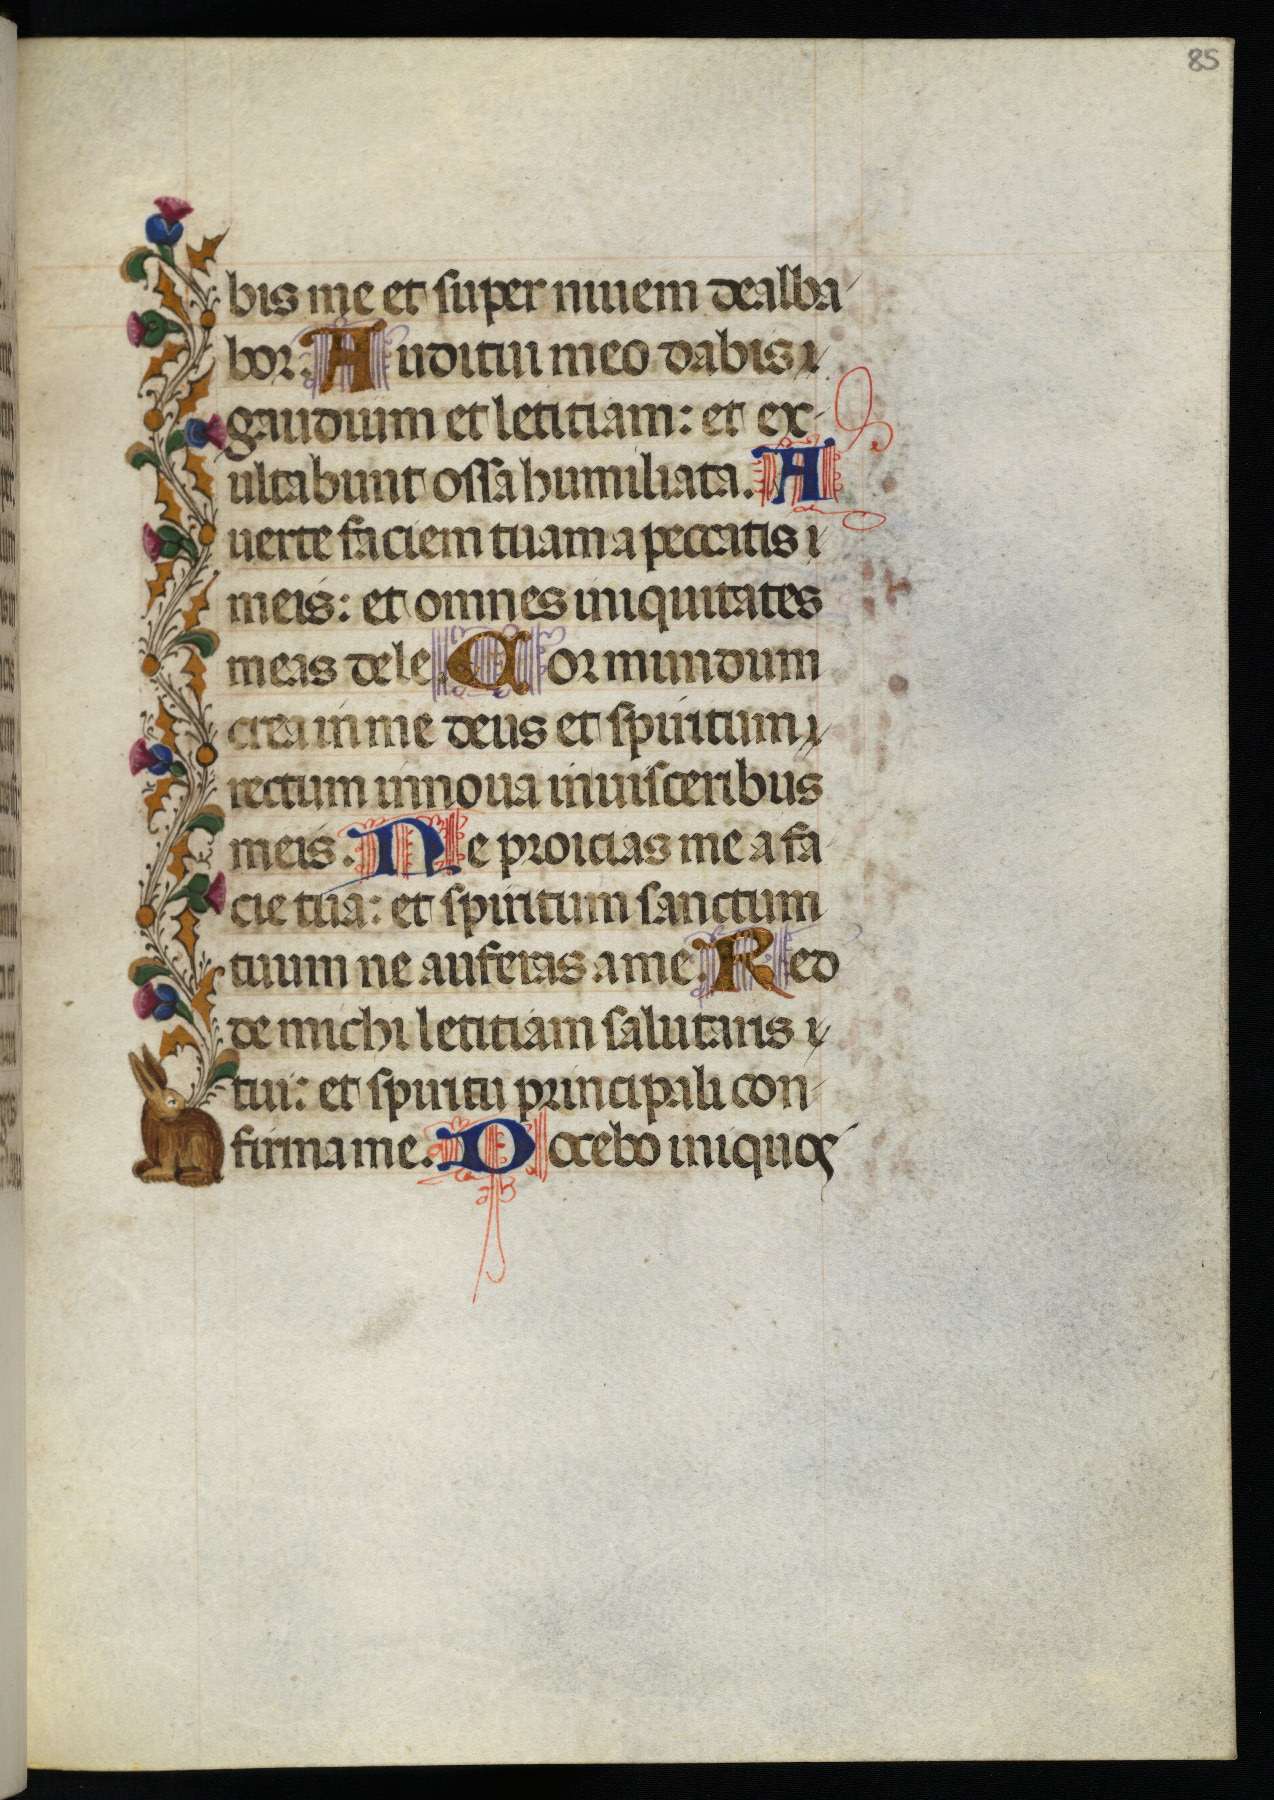 85
bis me et super niuem dealba
bor. Auditui meo dabis
gaudium et letitiam: et ex
ultabunt ossa humiliata. A
uerte faciem tuam a peccatis
meis: et omnes iniquitates
meas dele. Cor mundum
crea in me deus et spiritum
rectum innoua in uisceribus
meis. Ne proicias me a fa
cie tua: et spiritum sanctum
tuum ne auferas a me. Red
de michi letitiam salutaris
tui: et spiritu principali con
firma me. Docebo iniquos